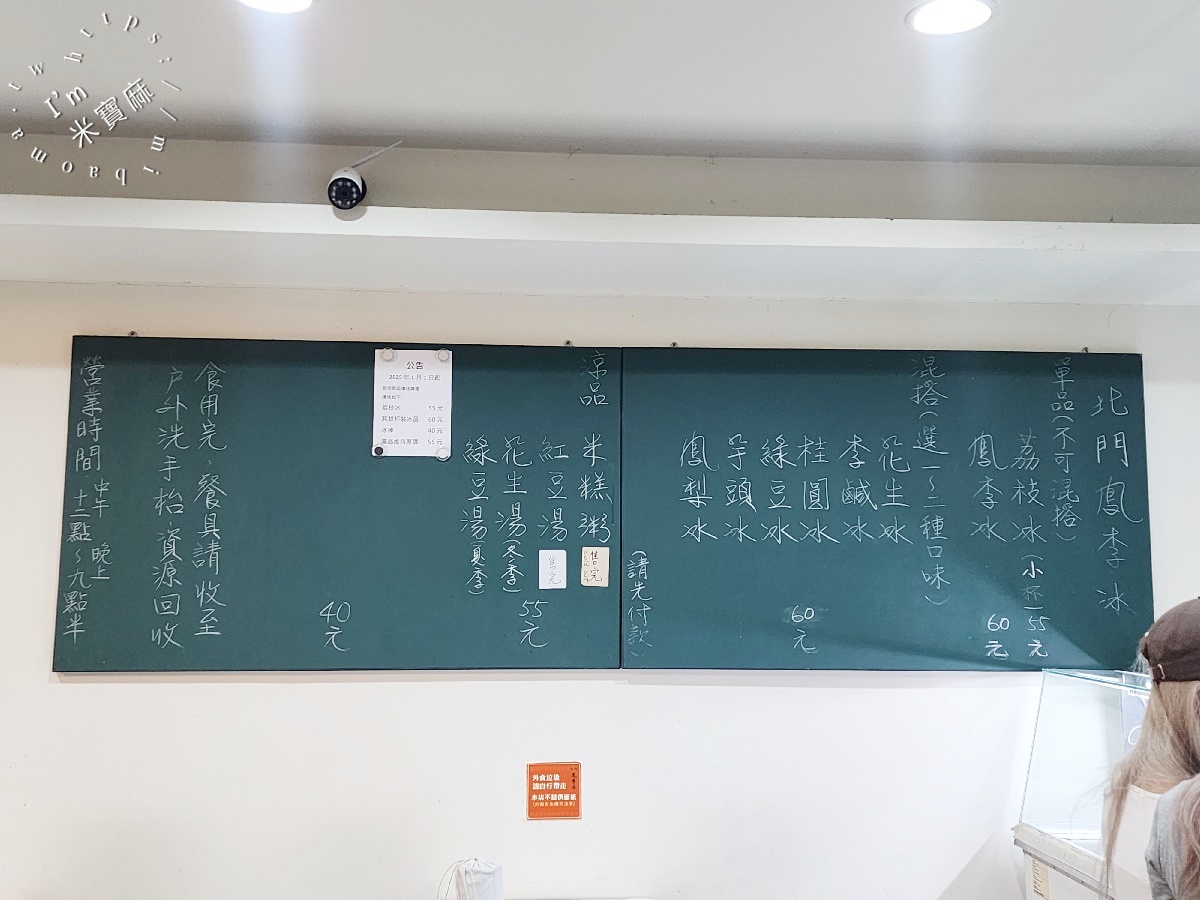 北門鳳李冰
單品(不可混搭)
荔枝冰 小杯 55元
鳳李冰 60元
混搭(選一~二種口味)
花生冰
李鹹冰
桂圓冰
綠豆冰
芋頭冰
鳳梨冰
60元
(請先付款)
涼品
米糕粥 售完
紅豆湯 售完
花生湯(冬季)
綠豆湯(夏季)
55元
公告
2025年1月1日起
荔枝冰 55元
其餘杯裝冰品 60元
冰棒 40元
40元
食用完,餐具請收至
戶外洗手枱.資源回收
營業時間 中午十二點~晚上九點半
外食垃圾
請自行帶走
本店不提供面紙
I'm
米寶麻
https://mibaoma.tw